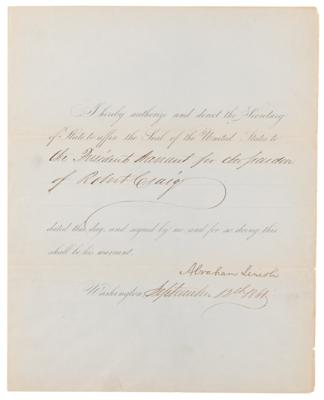 I hereby authorize and direct the Secretary
of State to affix the Seal of the United States to
the President's Warrant for the pardon
of Robert Craig
dated this day, and signed by me and for so doing this
shall be his warrant.
Abraham Lincoln
Washington, September 12th 186